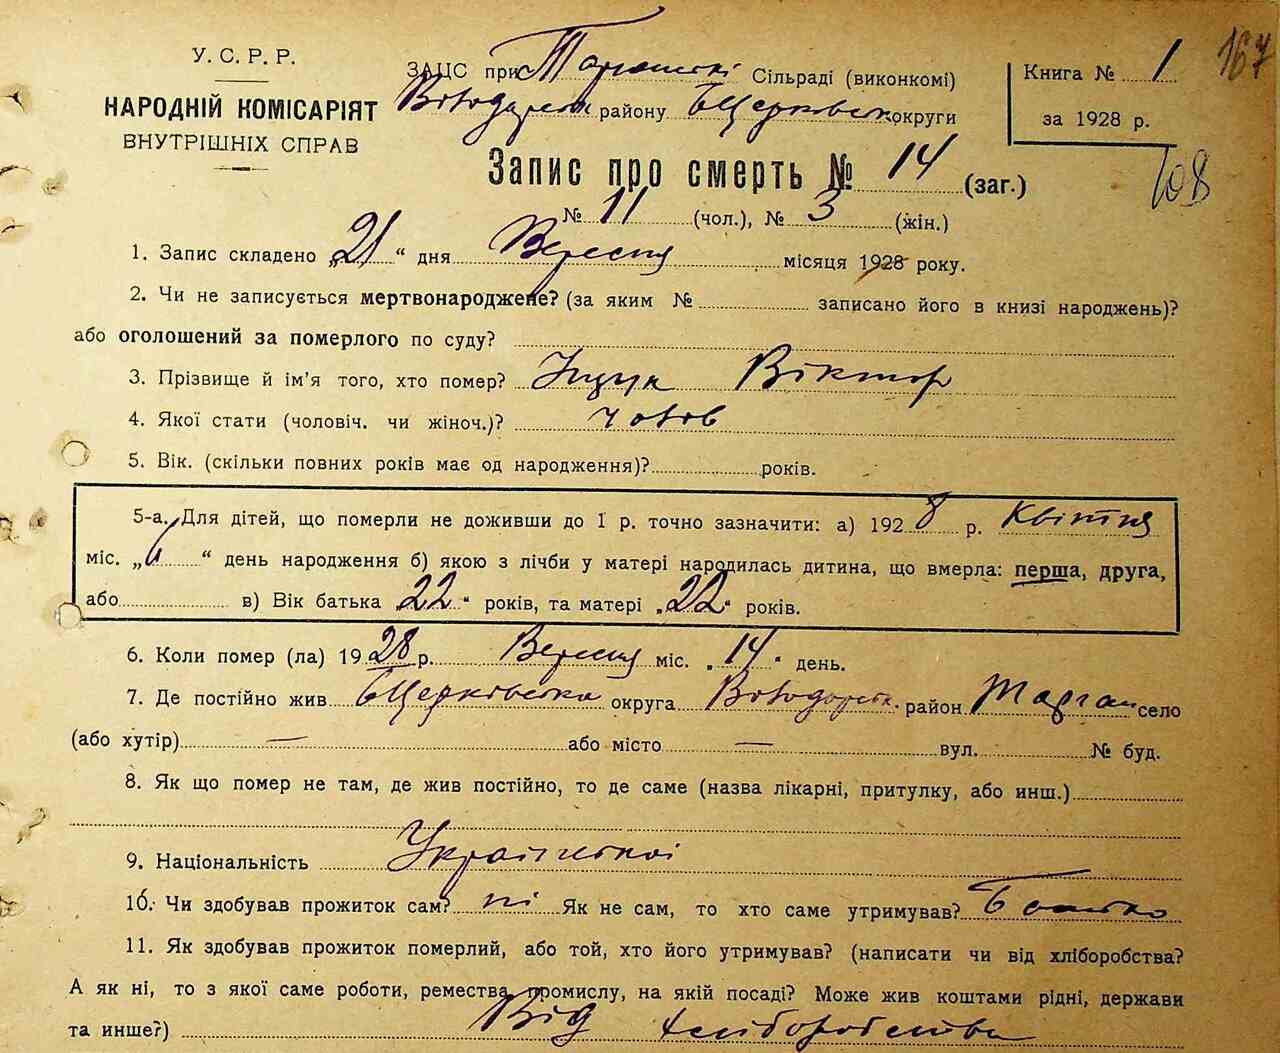 167
У. С. Р. Р.
НАРОДНІЙ КОМІСАРІЯТ
ВНУТРІШНІХ СПРАВ
ЗАЦС при Сільраді (виконкомі)
Володарськ району БЦерківськ округи
Книга № 1
за 1928 р.
108
Запис про смерть № 14 (заг.)
№ 11 (чол.), № 3 (жін.)
1. Запис складено „21“ дня Вересня місяця 1928 року.
2. Чи не записується мертвонароджене? (за яким № записано його в книзі народжень)?
або оголошений за померлого по суду?
3. Прізвище й ім'я того, хто помер? Іщук Віктор
4. Якої стати (чоловіч. чи жіноч.)? чолов
5. Вік. (скільки повних років має од народження)? років.
5-а. Для дітей, що померли не доживши до 1 р. точно зазначити: а) 1928 р. Квітня
міс. „6“ день народження б) якою з лічби у матері народилась дитина, що вмерла: перша, друга,
або в) Вік батька 22 “ років, та матері „22“ років.
6. Коли помер (ла) 1928 р. Вересня міс. „14“ день.
7. Де постійно жив БЦерківська округа Володарськ. район Тарган село
(або хутір) — або місто — вул. № буд.
8. Як що помер не там, де жив постійно, то де саме (назва лікарні, притулку, або инш.)
9. Національність Української
10. Чи здобував прожиток сам? ні Як не сам, то хто саме утримував? Батько
11. Як здобував прожиток померлий, або той, хто його утримував? (написати чи від хліборобства?
А як ні, то з якої саме роботи, ремества, промислу, на якій посаді? Може жив коштами рідні, держави
та инше?) Від хліборобства